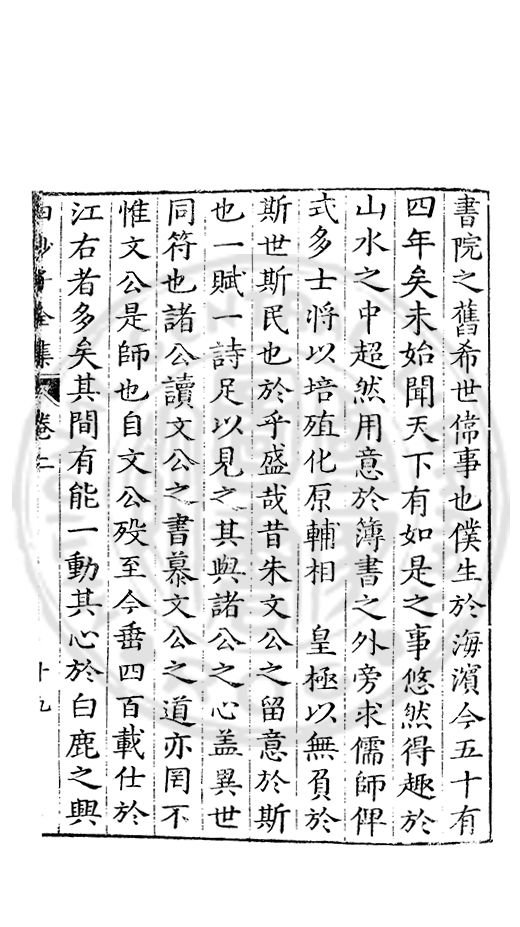 書院之舊希世偉事也僕生於海濵今五十有
四年矣未始聞天下有如是之事悠然得趣於
山水之中超然用意於簿書之外旁求儒師俾
式多士將以培殖化原輔相　皇極以無負於
斯世斯民也於乎盛哉昔朱文公之留意於斯
也一賦一詩足以見之其與諸公之心盖異世
同符也諸公讀文公之書慕文公之道亦罔不
惟文公是師也自文公歿至今垂四百載仕於
江右者多矣其間有能一動其心於白鹿之興
白沙子全集　卷二　十九